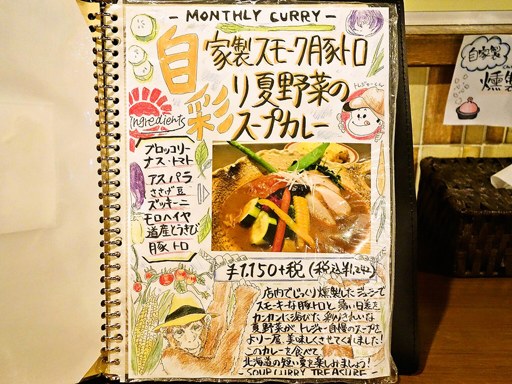 - MONTHLY CURRY -
自家製スモーク豚トロ
彩り夏野菜の
スープカレー
トレジャーくん
ingredients
ブロッコリー
ナス・トマト
アスパラ
ささげ豆
ズッキーニ
モロヘイヤ
道産とうきび
豚トロ
¥1,150+税 (税込¥1,242)
店内でじっくり燻製したジューシーで
スモーキーな豚トロと 日差を
カンカンに浴びた 彩りきれいな
夏野菜が、トレジャー自慢のスープを
より一層、美味しくさせてくれました!
このカレーを食べて
北海道の短い夏を楽しみましょう!
- SOUP CURRY TREASURE -
自家製
燻製